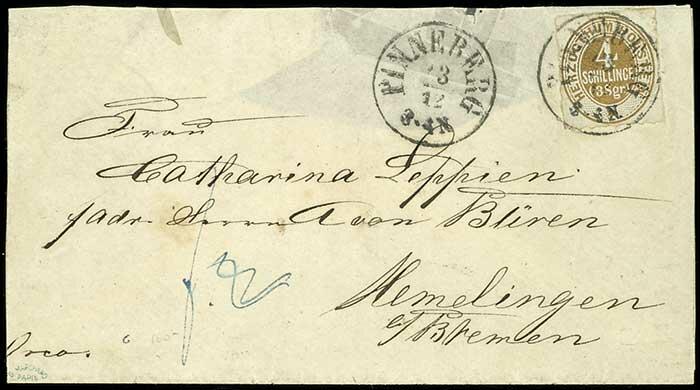 PINNEBERG
23
12
3-4N.
HERZOGTH. HOLSTEIN
4
SCHILLINGE
(3 Sgr.)
Frau
Catharina Leppien
p adr. Herrn A von Büren
Hemelingen
b/Bremen
frco.